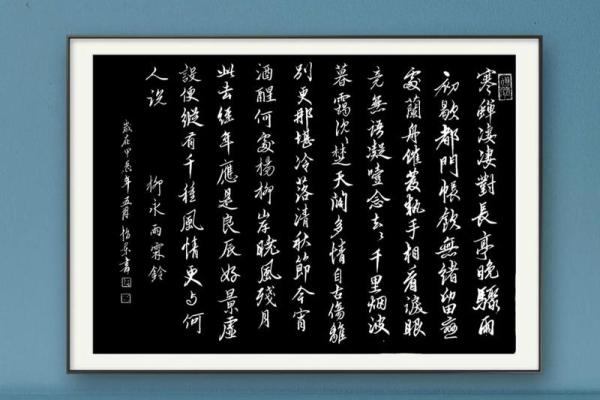 寒蟬凄凄對長亭晚驟雨
初歇都門帳飲無緒留戀
處蘭舟催發執手相看淚眼
竟無語凝噎念去々千里烟波
暮靄沉々楚天闊多情自古傷離
別更那堪冷落清秋節今宵
酒醒何處楊柳岸曉風殘月
此去經年應是良辰好景虛
設便縱有千種風情更与何
人説
柳永雨霖鈴
歲在甲辰年五月書